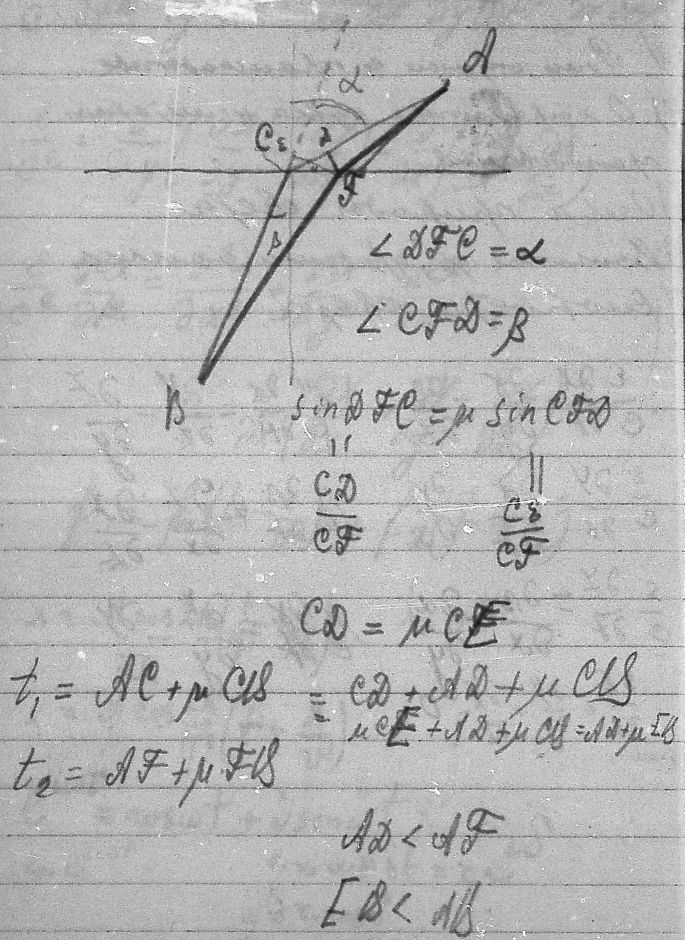 A
α
Cε α
F
β
B
∠DFC = α
∠CFD = β
sin DFC = μ sin CFD
|| ||
CD/CF Cε/CF
CD = μ CE
t₁ = AC + μ CB = CD + AD + μ CB
= μ CE + AD + μ CB = AD + μ EB
t₂ = AF + μ FB
AD < AF
EB < AB